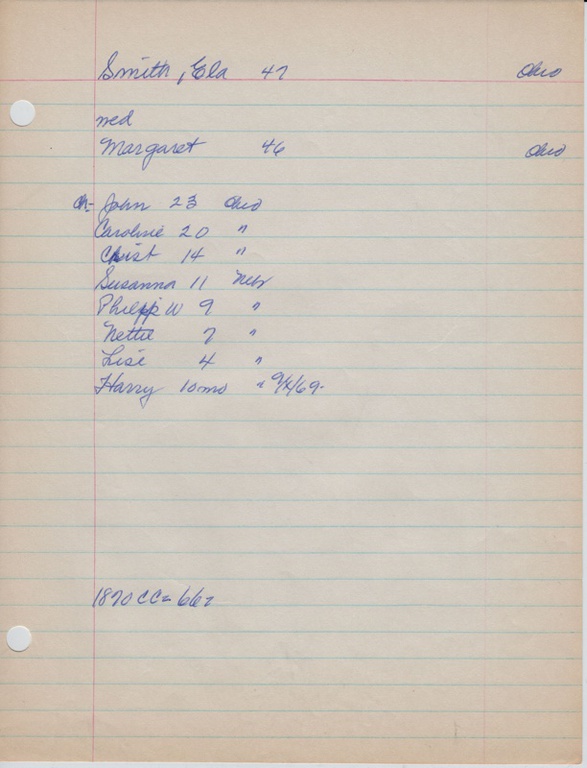 Smith, Ela 47 Ohio
med
Margaret 46 Ohio
ch- John 23 Ohio
Caroline 20 "
Christ 14 "
Susanna 11 Nebr
Philipp W 9 "
Nettie 7 "
Lise 4 "
Harry 10 mo "
1870 CC= 66